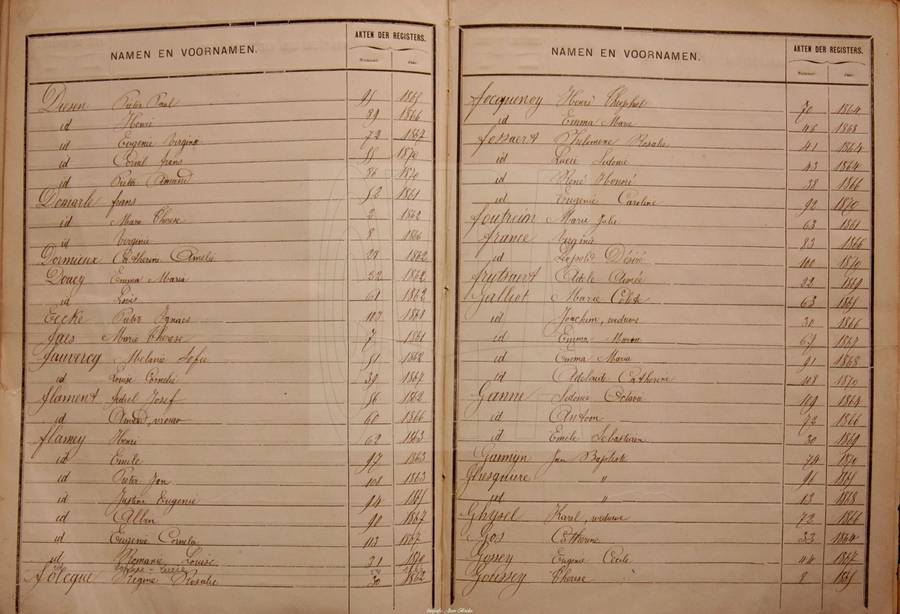 NAMEN EN VOORNAMEN.
AKTEN DER REGISTERS.
Nummer. Jaar.
Diesen Pieter Paul 95 1865
id Henri 29 1866
id Eugenie Virginie 72 1867
id 1870
id Pieter Amand 86 1870
Domarle frans 52 1861
id Marie Therese 2 1862
id Virginie 8 1866
Dormieux Catherine Amelie 28 1862
Doucy Emma Maria 32 1862
id Louis 61 1862
Eecke Pieter Ignaes 107 1868
faes Marie Therese 7 1861
fauvercq Melanie Sofie 51 1862
id Louise Cornelie 39 1867
flament Fidel Josef 56 1862
id Amand, vrouw 60 1866
flamey Henri 62 1863
id Emile 97 1863
id Pieter Jan 108 1863
id Justine Eugenie 94 1865
id Albin 90 1867
id Eugenie Cornelia 113 1867
id Romanie Louise 31 1870
folcque Regina Rosalie 30 1862
NAMEN EN VOORNAMEN.
AKTEN DER REGISTERS.
Nummer. Jaar.
focquenoy Henri Theophiel 70 1864
id Emma Marie 46 1868
fossaert Philomene Rosalie 41 1864
id Lucie Sidonie 43 1864
id René Honoré 38 1866
id Eugenie Caroline 92 1870
foutrein Marie Julie 63 1861
france Virginie 83 1866
id Leopold Désiré 100 1870
frutsaert Adele Aimée 22 1869
Galliot Marie Celeste 63 1865
id Joachim, weduwe 30 1866
id Emma 67 1867
id Emma Maria 91 1868
id Adelaide Catherine 108 1870
Ganne Sidonie Octavie 109 1864
id Antoon 72 1866
id Emile Sebastiaen 30 1869
Garmyn Jan Baptiste 74 1870
Ghesquiere " 96 1865
id " 13 1868
Ghysel Karel, weduwe 72 1866
Gos Catherine 33 1864
Gossey Eugenie Cecile 44 1867
Goussey Therese 8 1865